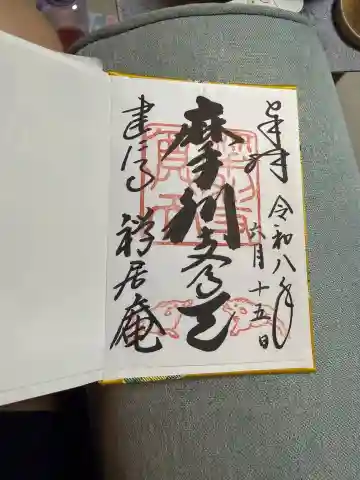 奉拝
令和八年
六月十五日
摩利支尊天
建仁寺
禅居庵